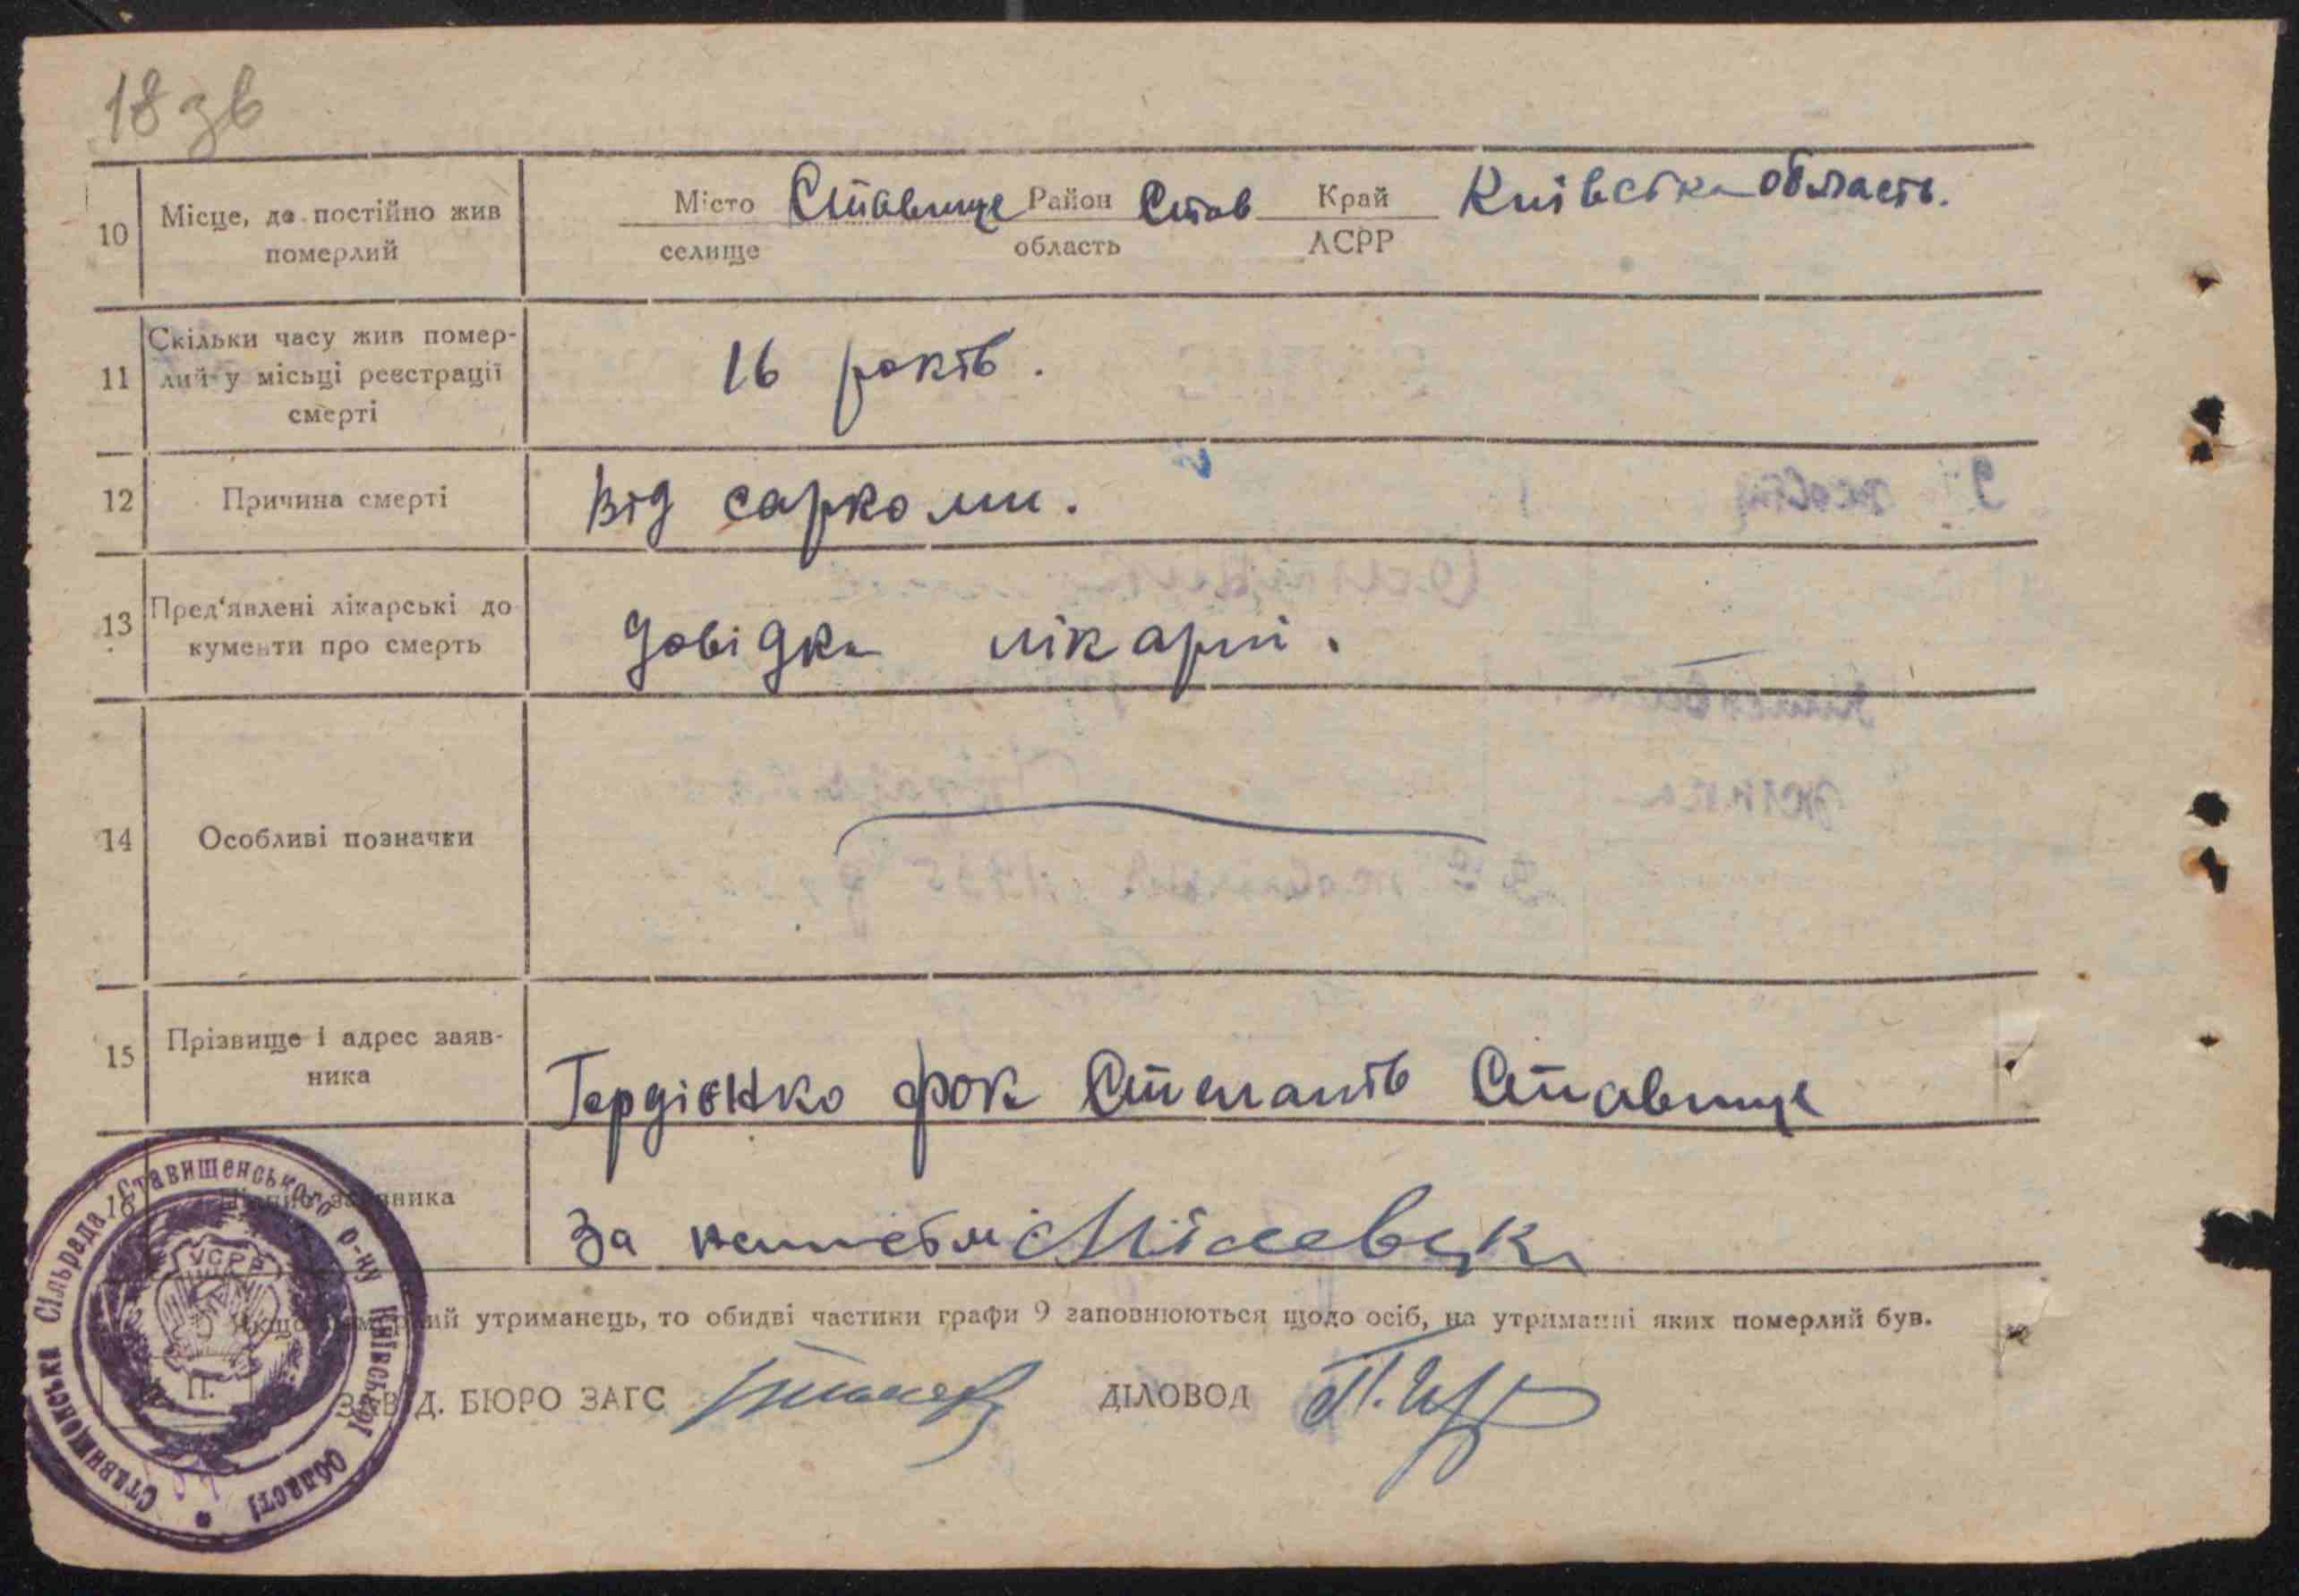 18 зв
10 Місце, де постійно жив померлий
Місто Ставище Район Став Край Київська область.
селище область АСРР
11 Скільки часу жив помер-
лий у місьці реєстрації
смерті
16 років.
12 Причина смерті
Від саркоми.
13 Пред'явлені лікарські до
кументи про смерть
Довідка лікарні.
14 Особливі позначки
15 Прізвище і адрес заяв-
ника
Гордієнко Фока Степанів Ставище
16 Підпис заявника
За неписьм Мілевськ
Якщо померлий утриманець, то обидві частини графи 9 заповнюються щодо осіб, на утриманні яких померлий був.
ЗАВІД. БЮРО ЗАГС
ДІЛОВОД
М. П.
Ставищенська Сільрада Ставищенського р-ну Київської Області
УСРР